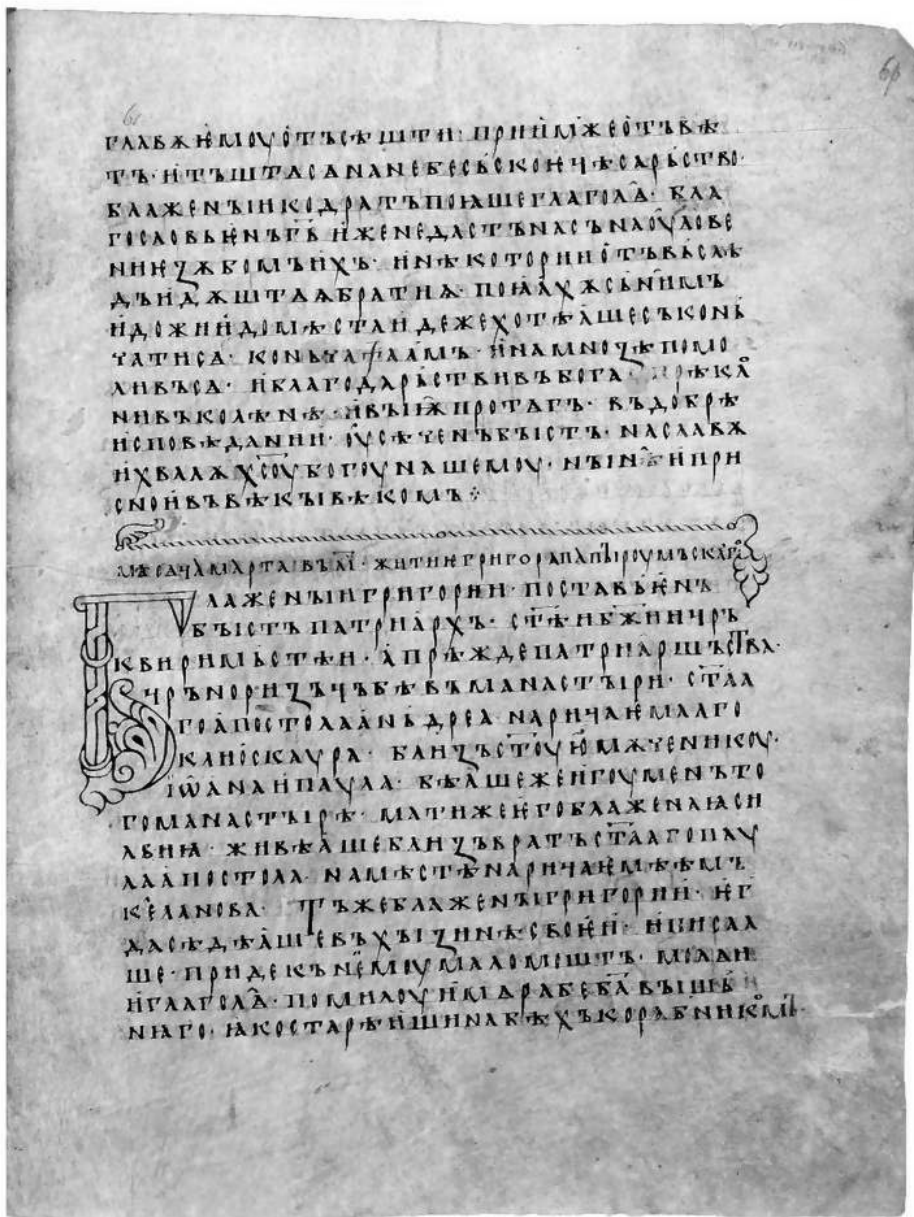 главѫ ѥмоу отъсѣшти· приимъ же отъвѣ
тъ· и тъшта сѧ на небесьскоѥ чѣсарьство·
блаженꙑи кодратъ поꙗше глаголѧ· бла
гословьѥнъ г҃ь иже не дастъ насъ на оуловѥ
ниѥ ѫбомъ ихъ· и нѣкотории отъ въслѣ
дъ идѫштаѧ братиѧ· поꙗахѫ сь н҄имь
и дожии до мѣста идеже хотѣаше съконь
чати сѧ· коньча ѱалъмъ· и на мноꙁѣ помо
ливъ сѧ· и благодарьствивъ бога прѣкло
нивъ колѣнѣ· и вꙑѭ протѧгъ· въ добрѣ
исповѣдании· оусѣченъ бꙑстъ· на славѫ
и хвалѫ х҃соу богоу нашемоу· нꙑн҄ѣ и при
сно и въ вѣкꙑ вѣкомъ ⁘
мѣсѧца марта въ в҃і· житиѥ григора папꙑ роумъскаѥго
лаженꙑи григории· поставьѥнъ
бꙑстъ патриархъ· с҃тѣи б҃жии цръ
кви римьстѣи· а прѣжде патриаршъства·
чрънориꙁъцъ бѣ въ манастꙑри· с҃таа
го апостола аньдреа нарицаѥмааго
канѡскаура· баиꙁъ с҃тоую мѫченикоу·
іѡана и паула· бѣаше же игоуменъ то
го манастꙑрѣ· мати же ѥго блаженаꙗ си
львиꙗ· живѣаше баиꙁъ вратъ с҃таго пау
ла апостола· на мѣстѣ нарицаѥмѣѥмъ
кеѵланова· тъ же блаженꙑ григории· ѥг
да сѣдѣаше въ хꙑꙁинѣ своѥи· и писаа
ше· приде къ н҄ѥмоу маломошть· молѧ и
и глаголѧ· помилоуи мѧ рабе б҃а вꙑшь
нꙗго· ꙗко старѣишина бѣхъ корабникомъ·